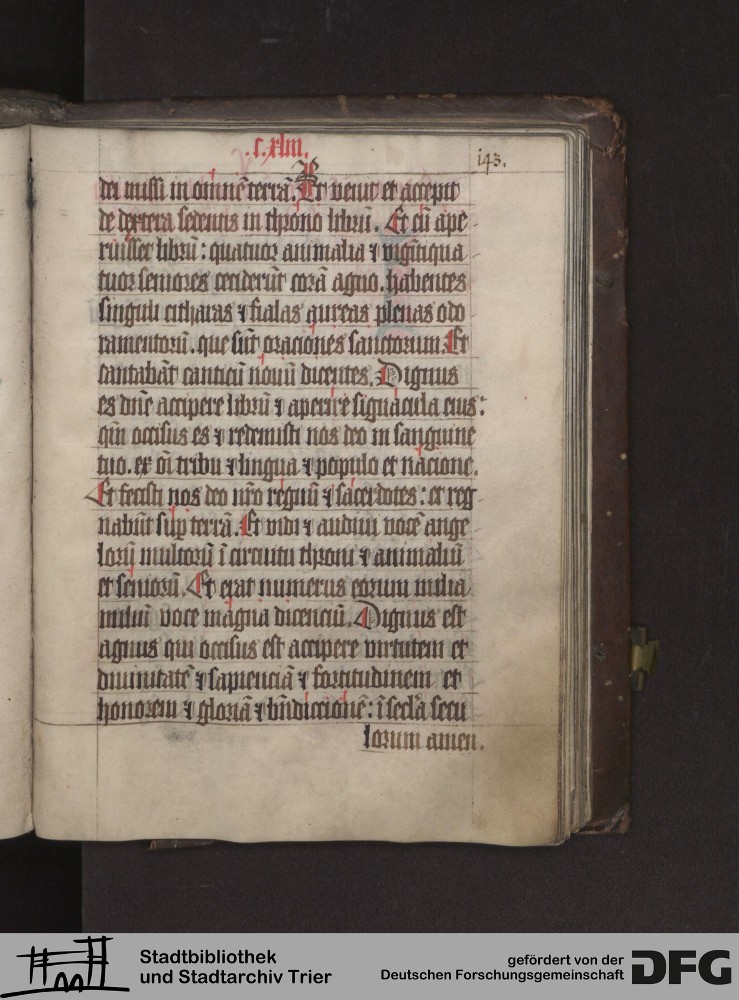 .c.xliii.
143.
dei missi in omnē terrā. Et venit et accepit
de dextera sedentis in throno librū. Et cū ape
ruisset librū: quatuor animalia ⁊ vigītiqua
tuor seniores ceciderūt corā agno. habentes
singuli citharas ⁊ fialas aureas plenas odo
ramentorū. que sūt oraciones sanctorum. Et
cantabāt canticū nouū dicentes. Dignus
es dn̄e accipere librū ⁊ aperire signacula eius:
qm̄ occisus es ⁊ redemisti nos deo in sanguine
tuo. ex oī tribu ⁊ lingua ⁊ populo et nacione.
Et fecisti nos deo nr̄o regnū ⁊ sacerdotes: et reg
nabūt sup terrā. Et vidi ⁊ audiui vocē ange
lorū multorū ī circuitu throni ⁊ animaliū
et seniorū. Et erat numerus eorum milia
miliū voce magna dicenciū. Dignus est
agnus qui occisus est accipere virtutem et
diuinitatē ⁊ sapienciā ⁊ fortitudinem et
honorem ⁊ gloriā ⁊ bn̄diccionē: ī secla secu
lorum amen.
Stadtbibliothek
und Stadtarchiv Trier
gefördert von der
Deutschen Forschungsgemeinschaft
DFG